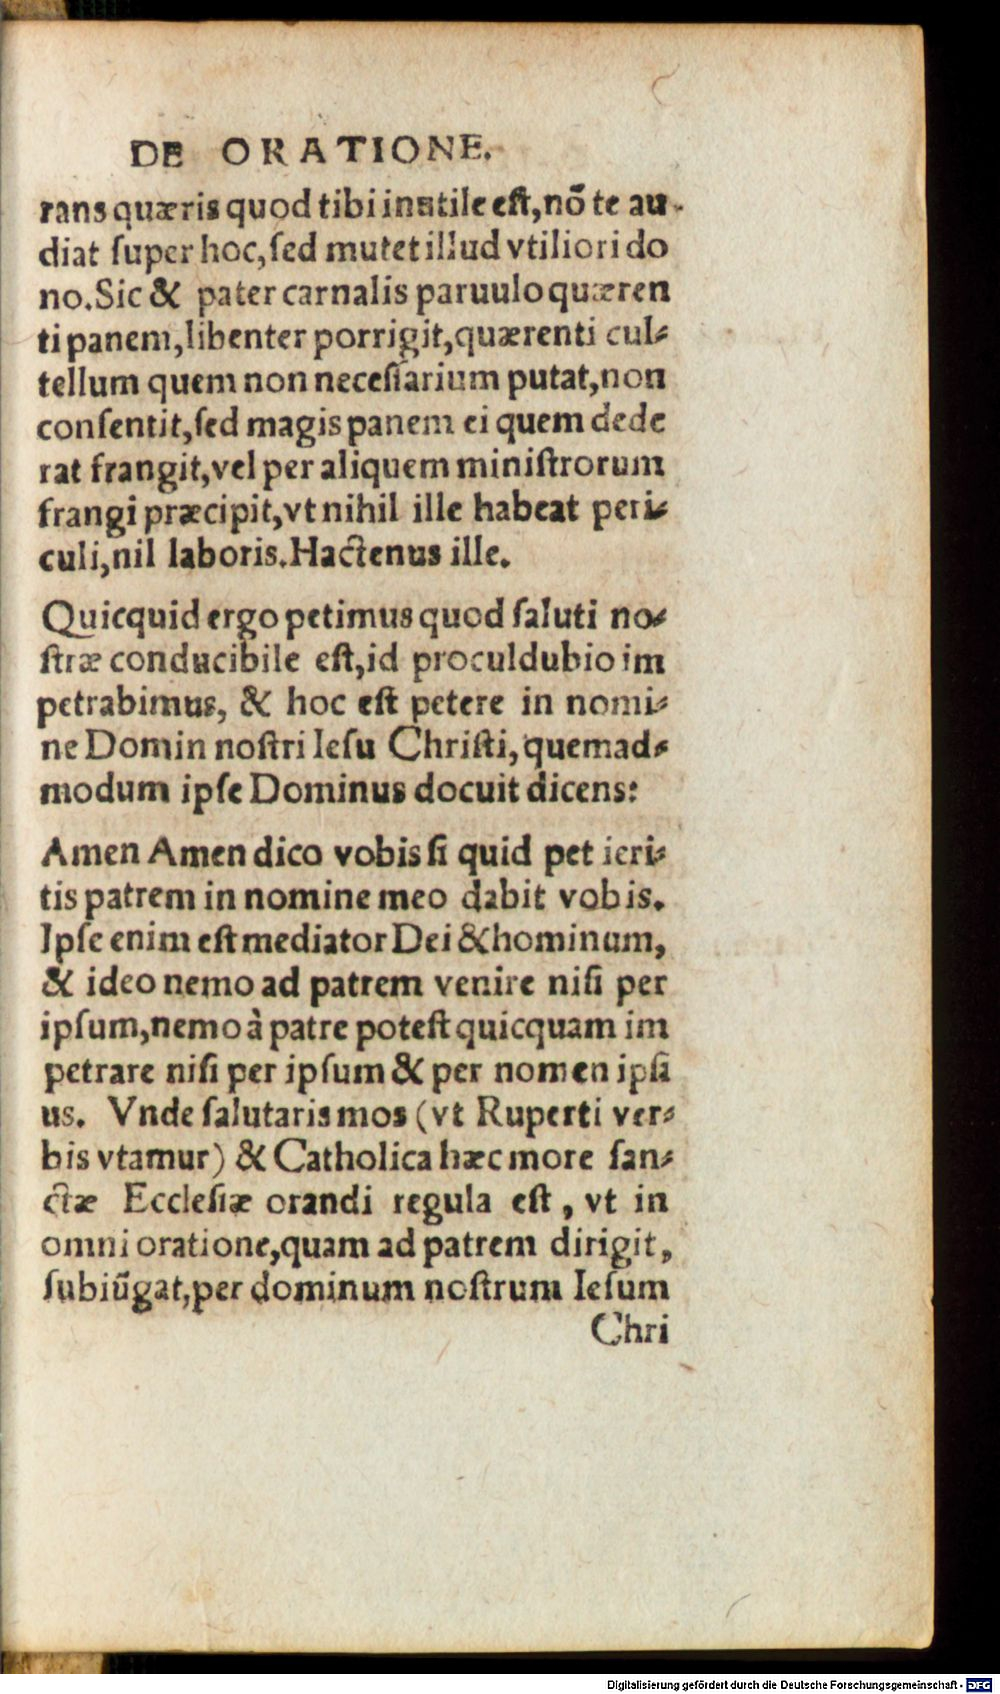 DE ORATIONE.
rans quæris quod tibi inutile eſt,nō te au-
diat ſuper hoc,ſed mutet illud vtiliori do
no.Sic & pater carnalis paruulo quæren
ti panem,libenter porrigit,quærenti cul-
tellum quem non neceſſarium putat,non
conſentit,ſed magis panem ei quem dede
rat frangit,vel per aliquem miniſtrorum
frangi præcipit,vt nihil ille habeat peri-
culi,nil laboris.Hactenus ille.
Quicquid ergo petimus quod ſaluti no-
ſtræ conducibile eſt,id proculdubio im
petrabimus, & hoc eſt petere in nomi-
ne Domin noſtri Ieſu Chriſti,quemad-
modum ipſe Dominus docuit dicens:
Amen Amen dico vobis ſi quid pet ieri-
tis patrem in nomine meo dabit vobis.
Ipſe enim eſt mediator Dei & hominum,
& ideo nemo ad patrem venire niſi per
ipſum,nemo à patre poteſt quicquam im
petrare niſi per ipſum & per nomen ipſi
us. Vnde ſalutaris mos (vt Ruperti ver-
bis vtamur) & Catholica hæc more ſan-
ctæ Eccleſiæ orandi regula eſt, vt in
omni oratione,quam ad patrem dirigit,
ſubiūgat,per dominum noſtrum Ieſum
Chri
Digitalisierung gefördert durch die Deutsche Forschungsgemeinschaft - DFG